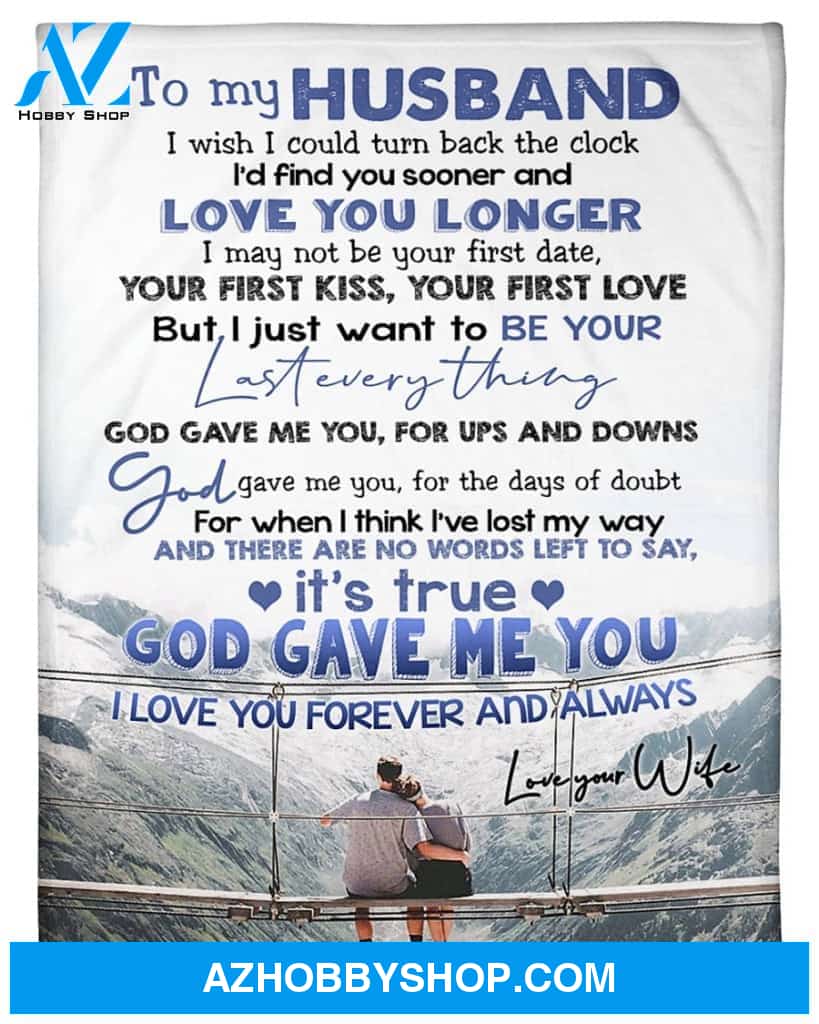 AZ
HOBBY SHOP
To my HUSBAND
I wish I could turn back the clock
I'd find you sooner and
LOVE YOU LONGER
I may not be your first date,
YOUR FIRST KISS, YOUR FIRST LOVE
But, I just want to BE YOUR
Last every thing
GOD GAVE ME YOU, FOR UPS AND DOWNS
God gave me you, for the days of doubt
For when I think I've lost my way
AND THERE ARE NO WORDS LEFT TO SAY,
it's true
GOD GAVE ME YOU
I LOVE YOU FOREVER AND ALWAYS
Love your Wife
AZHOBBYSHOP.COM